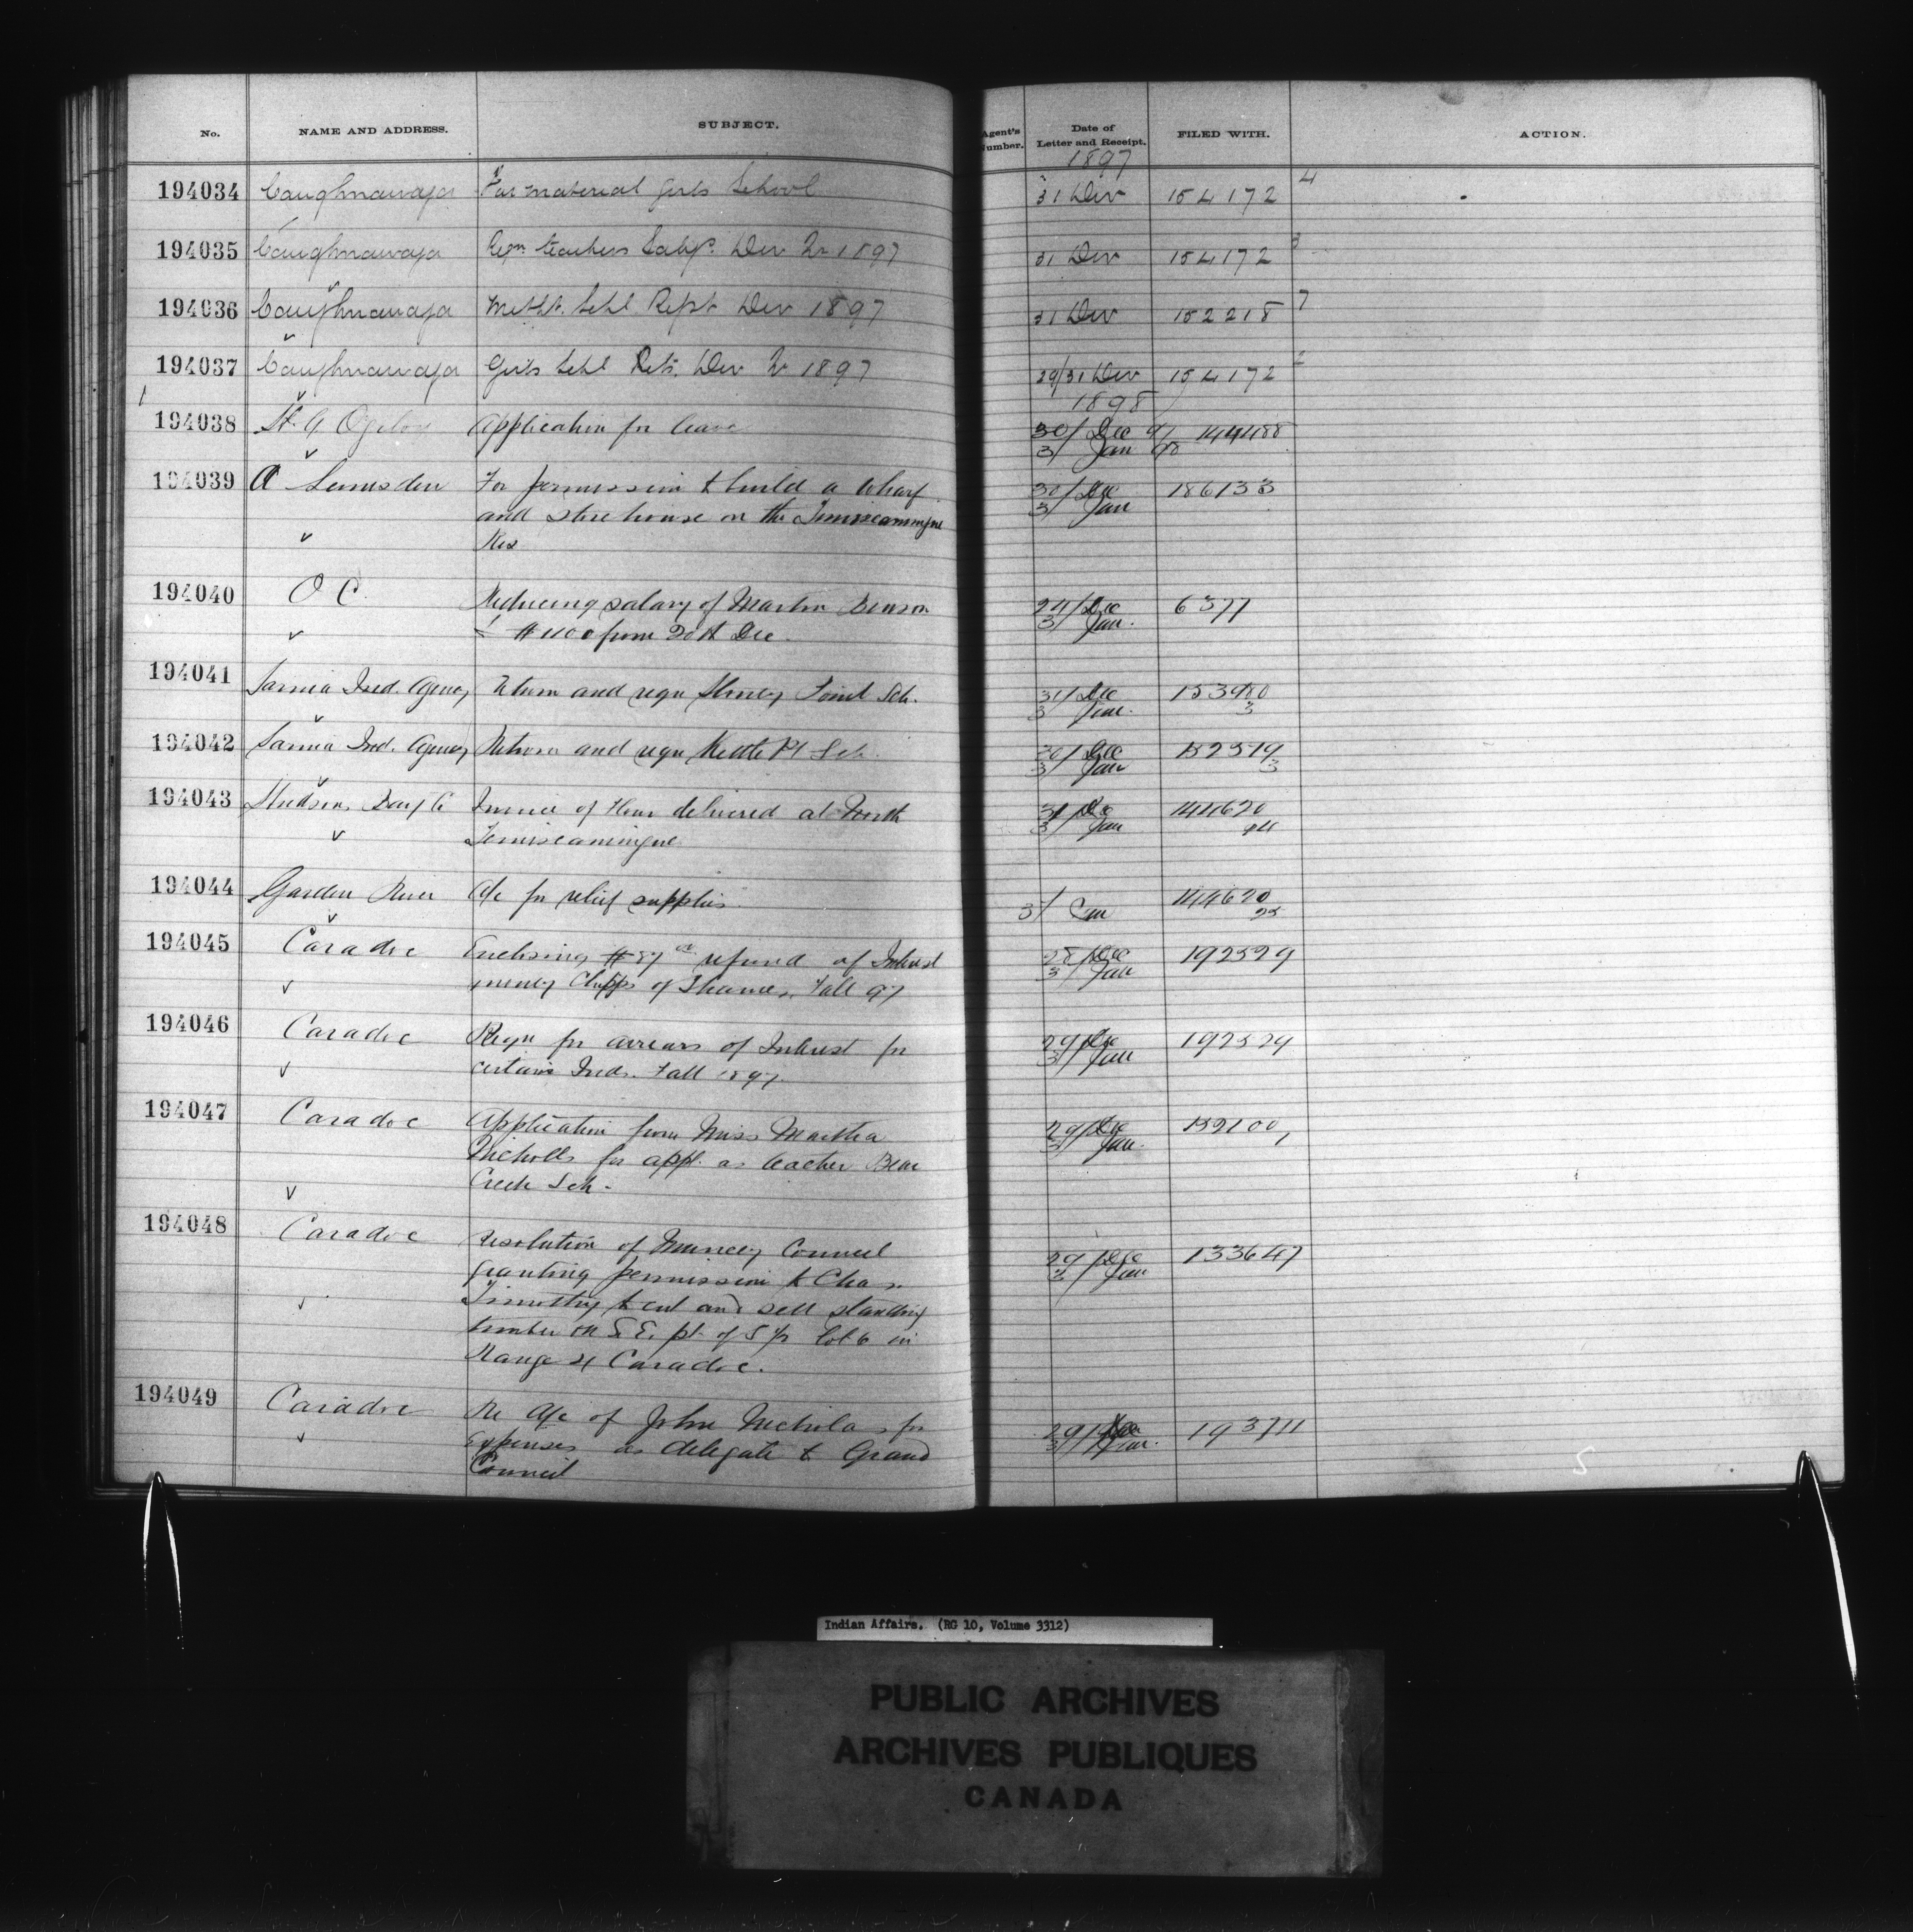 No. NAME AND ADDRESS. SUBJECT. Agent's Number. Date of Letter and Receipt. FILED WITH. ACTION.
1897
194034 Caughnawaga For material Girls School 31 Dec 154172 4
194035 Caughnawaga Reqn teachers Saly. Dec Qr 1897 31 Dec 154172 3
194036 Caughnawaga Metht. Schl Rept Dec 1897 31 Dec 152218 7
194037 Caughnawaga Girls Schl Rets. Dec Qr 1897 29/31 Dec 154172
1898
194038 Application for leave 30/ Dec 97
3/ Jan 98
194039 A Lumsden For permission to build a wharf 30/ Dec 186133
and store house on the Temiscamingue 3/ Jan
Res
194040 O C. Reducing salary of Martin Benson 24/ Dec 6377
to $1100 from 20th Dec. 3/ Jan.
194041 Sarnia Ind. Agency Return and reqn Stoney Point Sch. 31/ Dec
3 Jan. 3
194042 Sarnia Ind. Agency Return and reqn Kettle Pt Sch. 30/ Dec 152519
3/ Jan 3
194043 Hudsons Bay Co Invoice of flour delivered at North 31 Dec 144620
Temiscamingue 3/ Jan
194044 Garden River A/c for relief supplies. 3/ Jan 144620
25
194045 Caradoc Enclosing $87 refund of Interest 28/ Dec 192529
money Chipps of Thames, Fall 97 3/ Jan
194046 Caradoc Reqn for arrears of Interest for 29/ Dec 192529
certain Inds. Fall 1897. 3/ Jan
194047 Caradoc Application from Miss Martha 29/ Dec 152100
Nicholls for appt. as teacher Bear 3/ Jan.
Creek Sch.
194048 Caradoc Resolution of Muncey Council 29/ Dec 133647
granting permission to Chas. 3/ Jan
Timothy to cut and sell standing
timber on S.E. pt. of S ½ lot 6 in
Range 4 Caradoc.
194049 Caradoc Re A/c of John Nicholas for 29/ Dec 193711
Expenses as delegate to Grand 3/ Jan.
Council
5
Indian Affairs. (RG 10, Volume 3312)
PUBLIC ARCHIVES
ARCHIVES PUBLIQUES
CANADA